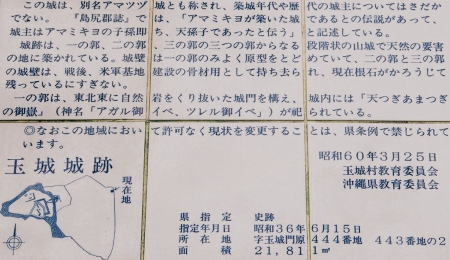 この城は、別名アマツヅ大城とも称され、築城年代や歴代の城主についてはさだか
『島尻郡誌』では、「アマミキヨが築いた城であるとの伝説があって、
城主はアマミキヨの子孫即ち、天孫子であったと伝う」と記述している。
城跡は、一の郭、二の郭、三の郭の三つの郭からなる段階状の山城で天然の要害
の地に築かれている。城壁は一の郭のみよく原型をとどめていて、二の郭と三の郭
の城壁は、戦後、米軍基地建設の骨材用として持ち去られ、現在根石がかろうじて
残っているにすぎない。
一の郭は、東北東に自然岩をくり抜いた城門を構え、城内には「天つぎあまつぎ
の御嶽」(神名「アガル御イベ、ツレル御イベ」)が祀られている。
◎なおこの地域において許可なく現状を変更することは、県条例で禁じられて
います。
昭和60年3月25日
玉城村教育委員会
沖縄県教育委員会
玉城城跡
現在地
県指定 史跡
指定年月日 昭和36年6月15日
所在地 字玉城門原444番地 443番地の2
面積 21,811㎡